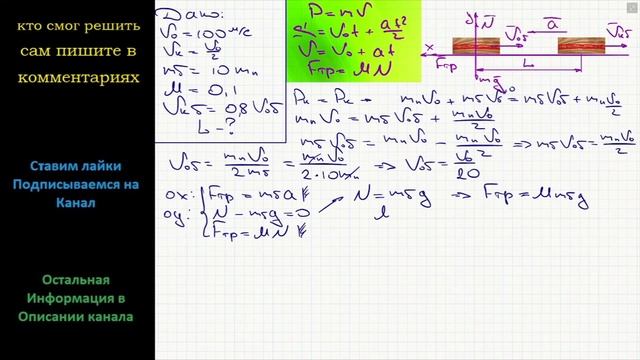 кто смог решить
сам пишите в
комментариях
Ставим лайки
Подписываемся на
Канал
Остальная
Информация в
Описании канала
Дано:
V₀ = 100 м/с
Vк = V₀/2
mб = 10 mп
M = 0,1
Vкб = 0,8 V₀б
L - ?
P = mV
L = V₀t + at²/2
V = V₀ + at
Fтр = MN
y N V₀б a Vкб
x Fтр mg L
Pн = Pк → mпV₀ + mбV₀ = mбV₀б + mпV₀/2
mпV₀ = mбV₀б + mпV₀/2
mбV₀б = mпV₀ - mпV₀/2 => mбV₀б = mпV₀/2
V₀б = mпV₀/2mб = mпV₀/2·10mп => V₀б = V₀/20
ox: Fтр = mбa
oy: N - mбg = 0 N = mбg => Fтр = Mmбg
Fтр = MN